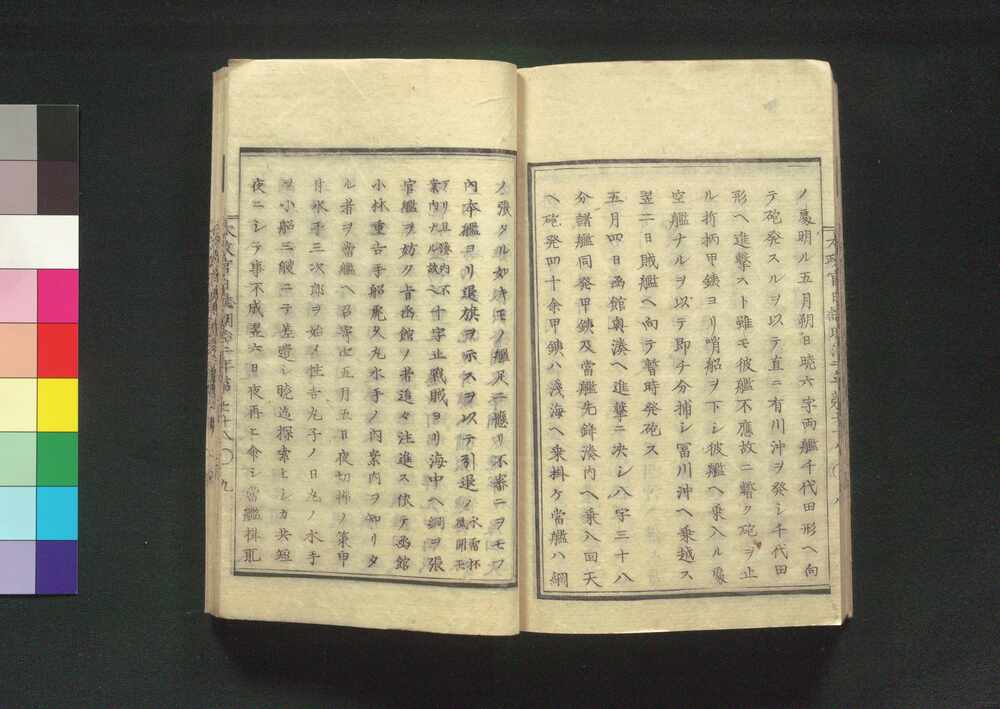 ノ處明ル五月朔日暁六字両艦千代田形ヘ向
テ砲発スルヲ以テ直ニ有川沖ヲ発シ千代田
形ヘ進撃スト雖モ彼艦不應故ニ暫ク砲ヲ止
ル折柄甲鉄ヨリ哨船ヲ下シ彼艦ヘ乗入ル處
空艦ナルヲ以テ即チ分捕シ冨川沖ヘ乗越ス
翌二日賊艦ヘ向テ暫時発砲ス
五月四日函館奥湊ヘ進撃ニ决シ八字三十八
分諸艦同発甲鉄及當艦先鋒湊内ヘ乗入回天
ヘ砲発四十余甲鉄ハ浅海ヘ乗掛ケ當艦ハ綱
ノ張タル如
内本艦ヨリ退旗ヲ示スヲ以テ引退ノ
案内ナル故ヘ十字止戰賊ヨリ海中ヘ綱ヲ張
官艦ヲ妨ク旨函館ノ者追々注進ス伏テ函館
小林重吉手船虎久丸水手ノ内案内ヲ知リタ
ル者ヲ當艦ヘ召寄セ五月五日夜切掃ノ策申
付水手三次郎ヲ始メ住吉丸子ノ日丸ノ水手
ヲ小船二艘ニテ差遣シ暁迠探索セシカ共短
夜ニシテ事不成翌六日夜再ヒ命シ當艦掛